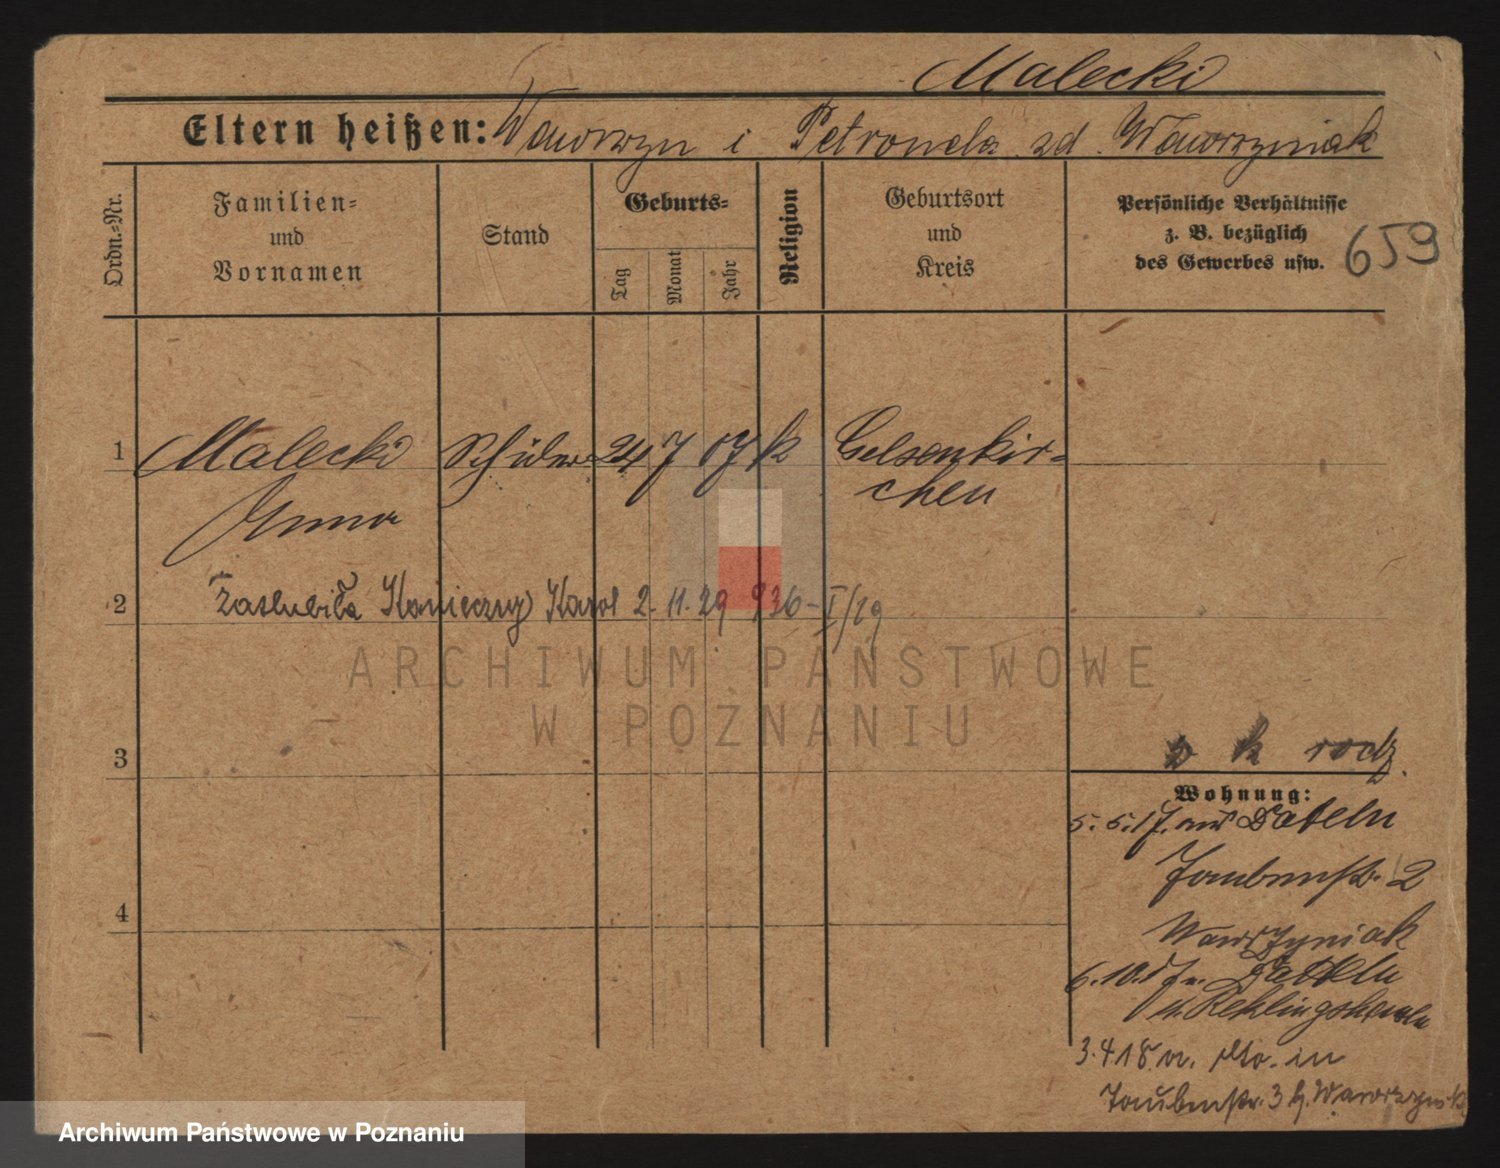 Malecki
Eltern heißen: Wawrzyn i Petronela zd. Wawrzyniak
Ordn.-Nr.
Familien-
und
Vornamen
Stand
Geburts-
Tag
Monat
Jahr
Religion
Geburtsort
und
Kreis
Persönliche Verhältnisse
z. B. bezüglich
des Gewerbes usw.
659
1 Malecki Schüler 24 7 07 k Gelsenkir-
chen
Anna
2 Zaślubiła Konieczny Karol 2. 11. 29 936-I/29
ARCHIWUM PAŃSTWOWE
W POZNANIU
3
k rodz.
Wohnung:
5. 5. 17. aus Datteln
Taubenstr. 2
Wawrzyniak
6. 10. 17 n. Datteln
3. 4 18 v. dto. in
Taubenstr. 3 b. Wawrzyniak
4
Archiwum Państwowe w Poznaniu